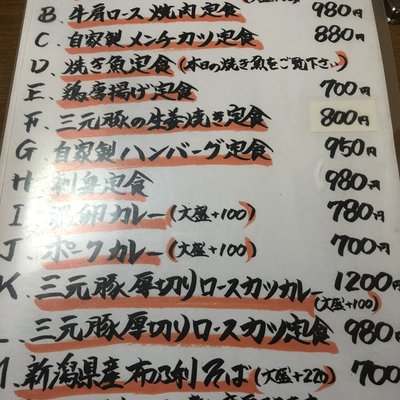 B. 牛肩ロース焼肉定食 980円
C 自家製メンチカツ定食 880円
D. 焼き魚定食(本日の焼き魚をご覧下さい)
E. 鶏唐揚げ定食 700円
F. 三元豚の生姜焼き定食 800円
G 自家製ハンバーグ定食 950円
H 刺身定食 980円
I カレー(大盛+100) 780円
J. ポークカレー(大盛+100) 700円
K. 三元豚厚切りロースカツカレー 1200円
(大盛+100)
三元豚厚切りロースカツ定食 980円
新潟県産布乃利そば(大盛+220) 700